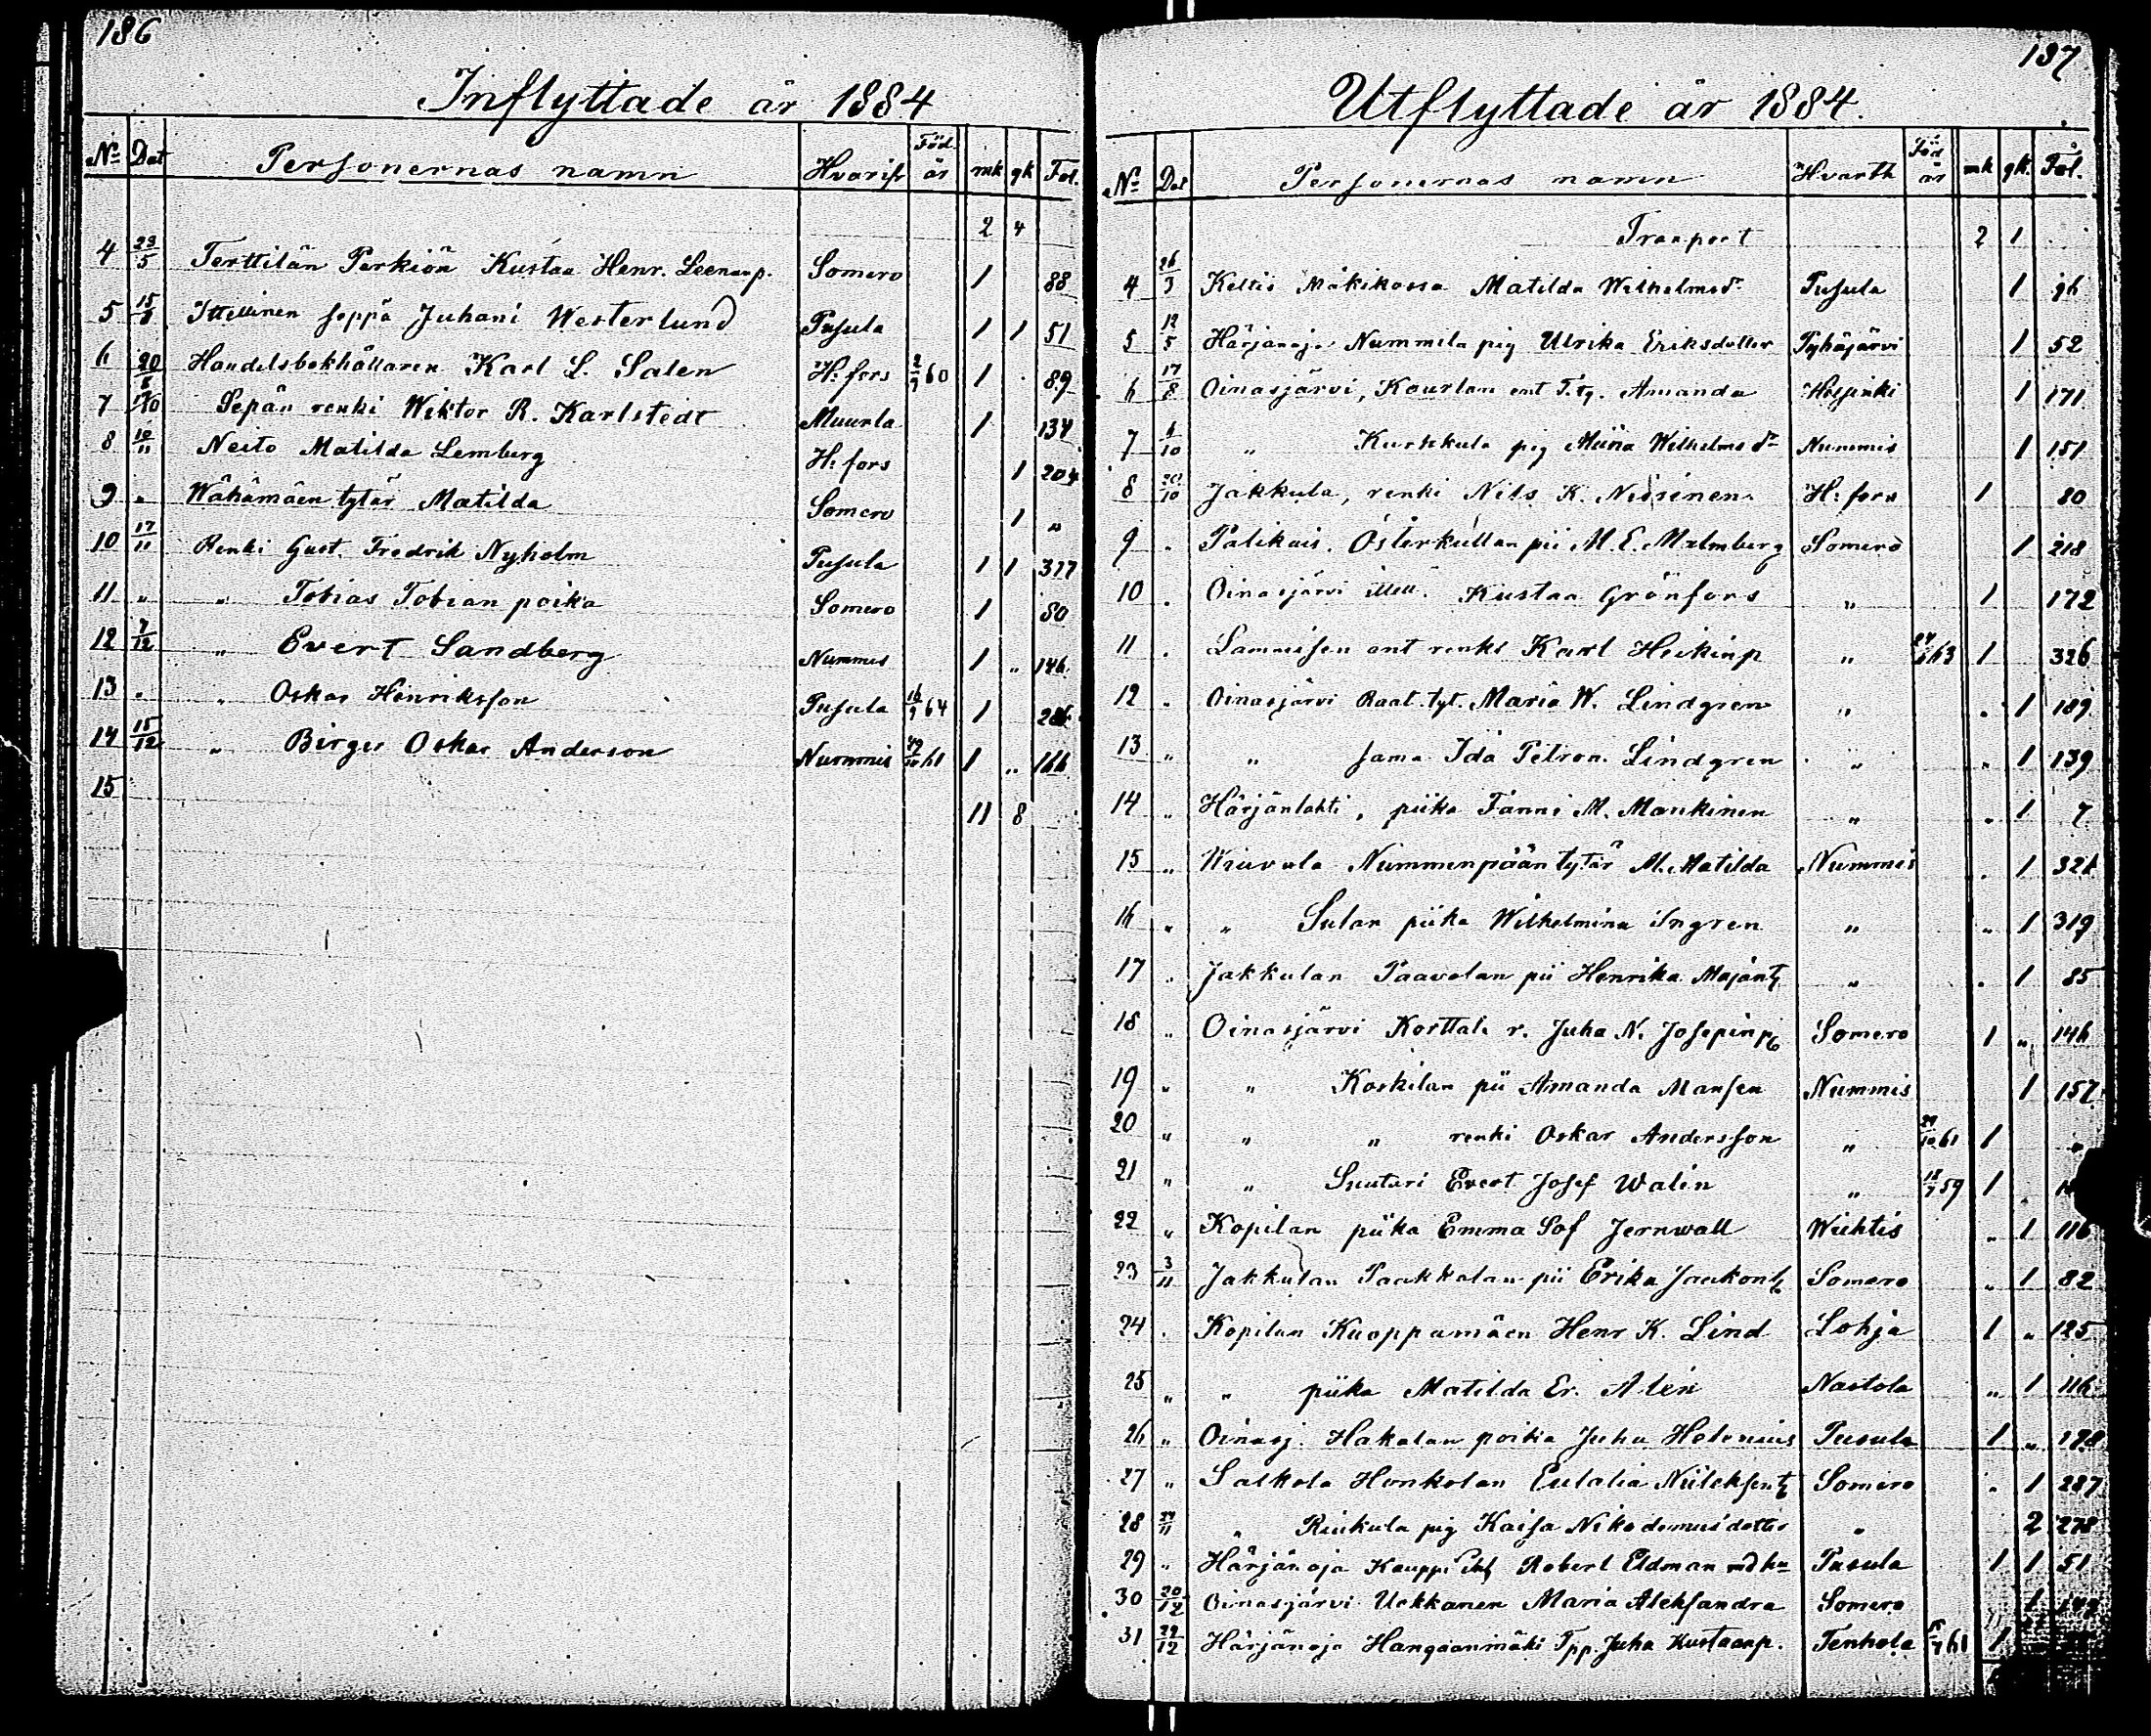 186
Inflyttade år 1884
No Dat Personernas namn Hvarifr Föd. år mk qk Fol.
2 4
4 23/5 Terttilän Perkiön Kustaa Henr. Leenanp. Somero 1 88
5 15/8 Ittellinen seppä Juhani Westerlund Pusula 1 1 51
6 20/8 Handelsbokhållaren Karl L. Salen H:fors 2/9 60 1 89
7 Sepän renki Wiktor R. Karlstedt Muurla 1 134
8 10/11 Neito Matilda Lemberg H:fors 1 204
9 " Wähämäen tytär Matilda Somero 1 "
10 17/11 Renki Gust. Fredrik Nyholm Pusula 1 1 317
11 " " Tobias Tobian poika Somero 1 80
12 7/12 " Evert Sandberg Nummis 1 " 146
13 " " Oskar Henriksson Pusula 16/9 64 1
14 15/12 " Birger Oskar Anderson Nummis 61 1 " 166
15
11 8
187
Utflyttade år 1884.
No Dat Personernas namn Hvarth Föd år mk qk. Fol.
Transport 2 1
4 26/3 Keltis Mäkikossa Matilda Wilhelmsdr Pusula 1 96
5 12/5 Härjänoja Nummila pig Ulrika Eriksdotter Pyhäjärvi 1 52
6 17/8 Oinasjärvi, Kourlan ent T. ty. Amanda Helsinki 1 171
7 6/10 " Kurkkula pig Miina Wilhelmsdr Nummis 1 151
8 20/10 Jakkula, renki Nils K. Nissinen H:fors 1 80
9 " Palikais. Österkullan pii M. E. Malmberg Somero 1 218
10 " Oinasjärvi ittell. Kustaa Grönfors " 1 172
11 " Lamminsen ent renki Karl Heikinp " 63 1 326
12 " Oinasjärvi Raat. tyt. Maria W. Lindgren " " 1 189
13 " " sama Ida Petron. Lindgren " " 1 139
14 " Härjänlahti, piika Fanni M. Mankinen " " 1 7
15 " Wiuvala Nummenpään tytär M. Matilda Nummis " 1 321
16 " " Sulan piika Wilhelmina Ingren " " 1 319
17 " Jakkulan Paavolan pii Henrika Majant " " 1 85
18 " Oinasjärvi Korttali r. Juha N. Josepinp Somero 1 " 146
19 " " Koskilan pii Amanda Mansen Nummis 1 157
20 " " " renki Oskar Andersson " 29/10 61 1 "
21 " " Suutari Evert Josef Walin " 18/7 59 1 "
22 " Kopilan piika Emma Sof Jernwall Wichtis " 1 116
23 3/11 Jakkulan Paakkolan pii Erika Jaakont Somero " 1 82
24 " Kopilan Kuoppamäen Henr K. Lind Lohja 1 " 125
25 " " piika Matilda Er. Alen Nastola " 1 116
26 " Oinasj. Hakalan poika Juha Helenius Pusula 1 " 178
27 " Salkola Honkolan Eulalia Niileksent Somero " 1 287
28 29/11 " Riukula pig Kaisa Nikodemusdotter " 2 278
29 " Härjänoja Kauppi Robert Eldman Pusula 1 1 51
30 20/12 Oinasjärvi Uskkanen Maria Aleksandra Somero " 1 142
31 29/12 Härjänoja Hangaanmäki Tpp. Juha Kustaanp. Tenhola 61 1